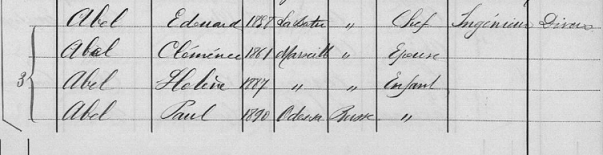 Abel Edouard 1858 Lasalle " Chef Ingénieur Divers
Abel Cléménce 1861 Marseille " Epouse
3 Abel Hélène 1887 " " Enfant
Abel Paul 1890 Odessa Russe "